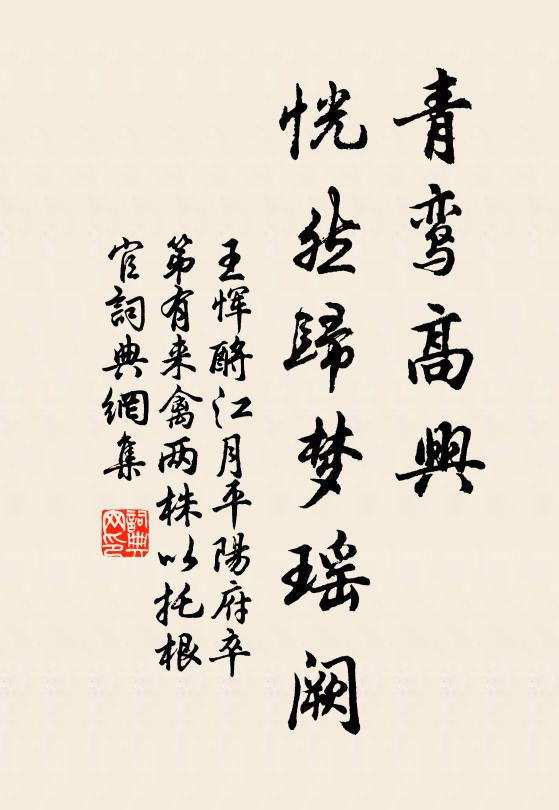 青鸾高興
恍然歸梦瑶阙
王恽酹江月平陽府卒
第有来禽两株以托根
官詞典網集
詞典
网印